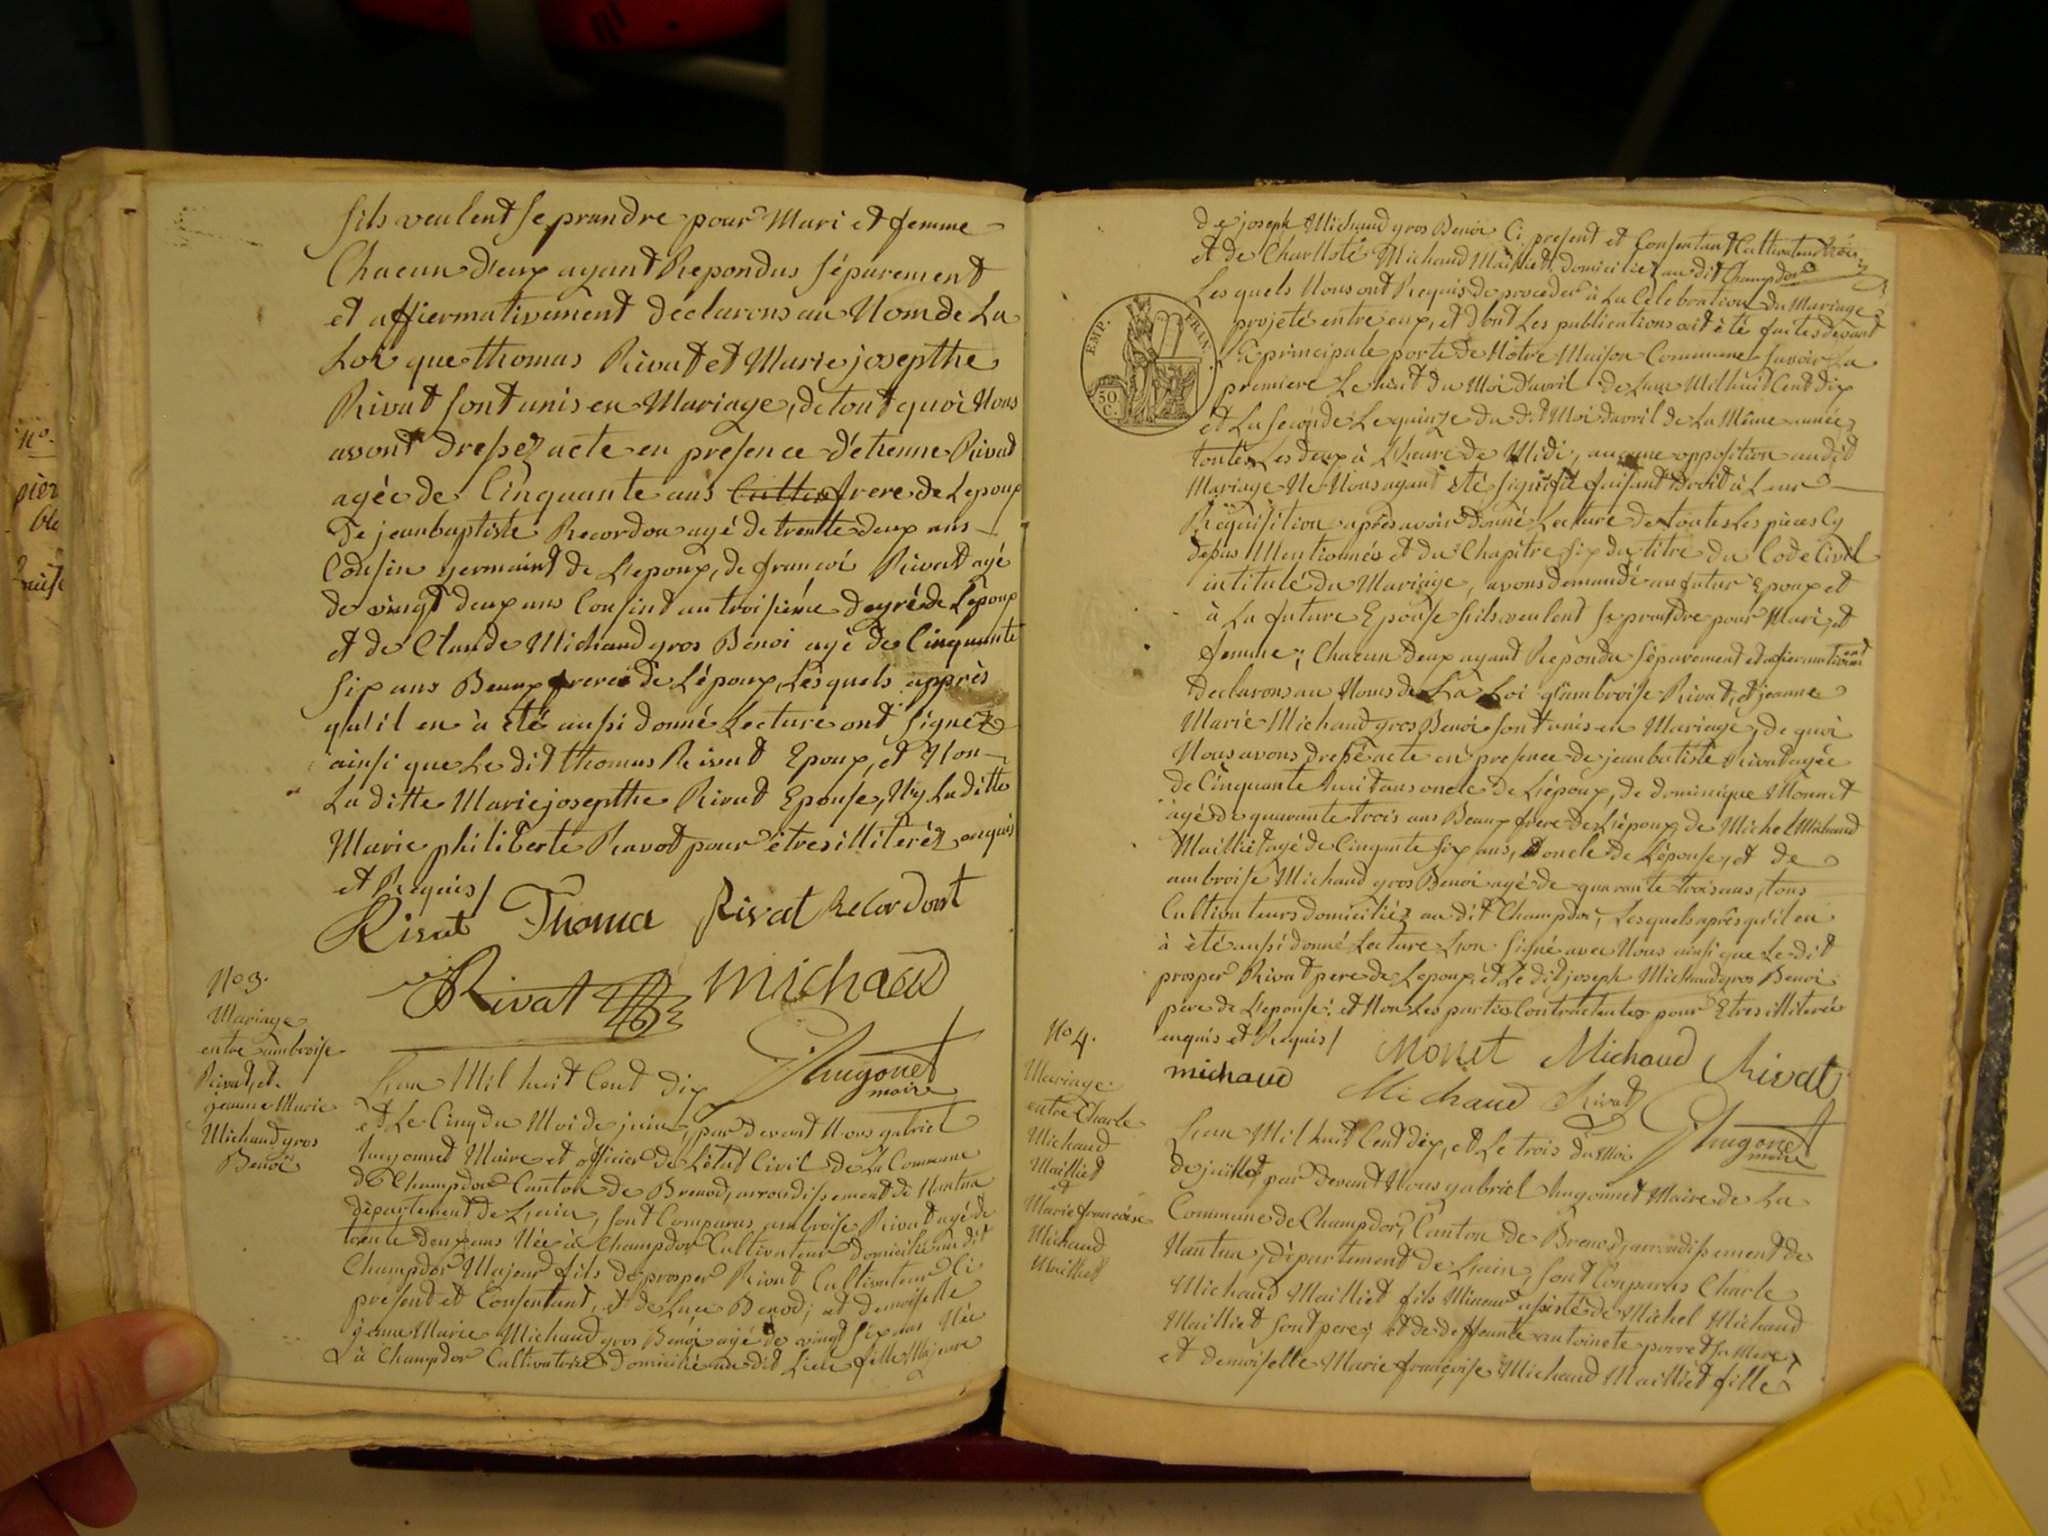 fils veulent se prandre pour Mari et femme
Chacun d'eux ayant Repondus séparement
et affiermativement declarons au Nom de La
Loi que thomas Rivat et Marie josepthe
Rivat sont unis en Mariage, de tout quoi Nous
avont dressez acte en presence d'étienne Rivat
agée de Cinquante ans frere de Lepoux
De jean baptiste Recordon agé de trentte deux ans
Cousin germaint de L'epoux, de francoi Rivat agé
de vingt deux ans Cousint au troisiéme degré de Lépoux
et de Claude Michaud gros Benoi agé de Cinquante
six ans Beaux frere de L'époux, Lesquels apprès
qu'il en à été aussi donné Lecture ont signez
ainsi que Le dit thomas Rivat Epoux, et Non
La ditte Marie josepthe Rivat Epouse, Ny La ditte
Marie philiberte Ravot pour étres illiterés enquis
et Requis /
Rivat Thoma Rivat Recordont
Rivat Michaud
Jhugonet
maire
No 3.
Mariage
entre ambroise
Rivat, et
jeanne Marie
Michaud gros
Benoi
Lan Mil huit Cent dix
et Le Cinq du Moi de juin, par devant Nous gabriel
hugonnet Maire et officier de L'état Civil de La Commune
de Champdor Canton de Brenod, arrondissement de Nantua
département de L'ain, sont Comparus ambroise Rivat agé de
trente deux ans Née à Champdor Cultivateur domicilié au dit
Champdor Majeur fils de prosper Rivat Cultivateur Ci
présent et Consentant, et de Luce Benod; et demoiselle
jeanne Marie Michaud gros Benoi agé de vingt six ans Née
à Champdor Cultivatrice domicilié au dit Lieu fille Majeure
de joseph Michaud gros Benoi Ci present et Consentant Cultivateur
et de Charllote Michaud Mailliet, domiciliez au dit Champdor
Les quels Nous ont Requis de proceder à La Célebration du Mariage
projeté entre eux, et dont Les publications ont été faites devant
La principale porte de Nôtre Maison Commune savoir La
premiere Le huit du Moi d'avril de Lan Mil huit Cent dix
et La seconde Le quinze du dit Moi davril de La Même année
toutes Les deux à L'heure de Midi, aucune opposition au dit
Mariage Ne Nous ayant été signifié faisant Droit à Leur
Requisition après avoir donné Lecture de toutes Les pieces Cy
dessus Mentionnés et du Chapitre six du titre du Code Civil
intitulé du Mariage, avons demandé au futur Epoux et
à La future Epouse sils veulent se prandre pour Mari, et
femme; Chacun deux ayant Repondu séparement et affiermativement
declarons au Noms de La Loi q'ambroise Rivat, et jeanne
Marie Michaud gros Benoi sont unis en Mariage, de quoi
Nous avons dressé acte en presence de jean batiste Rivat agée
de Cinquante huit ans oncle de L'époux, de dominique Monnet
agé de quarante trois ans Beaux frere de L'époux, de Michel Michaud
Mailliet agé de Cinqante six ans, oncle de L'épouse, et de
ambroise Michaud gros Benoi agé de quarante trois ans, tous
Cultivateurs domiciliéz au dit Champdor, Lesquels après qu'il en
à été aussi donné Lecture L'on signé avec Nous ainsi que Le dit
prosper Rivat pere de Lepoux, et Le dit joseph Michaud gros Benoi
pere de L'epouse, et Non Les parties Contractantes pour Etres illiterés
enquis et Requis /
Monet Michaud Rivat
michaud Michaud Rivat
Jhugonet
maire
No 4.
Mariage
entre Charle
Michaud
Mailliet
et
Marie francoise
Michaud
Mailliet
Lan Mil huit Cent dix, et Le trois du Moi
de juillet par devant Nous gabriel hugonnet Maire de La
Commune de Champdor, Canton de Brenod, arrondissement de
Nantua, département de L'ain, sont Conparus Charle
Michaud Mailliet fils Mineur assisté de Michel Michaud
Mailliet sont pere, et de deffeunte antoinete porret sa Mere,
et demoiselle Marie françoise Michaud Mailliet fille
EMP. FRAN.
50
C.